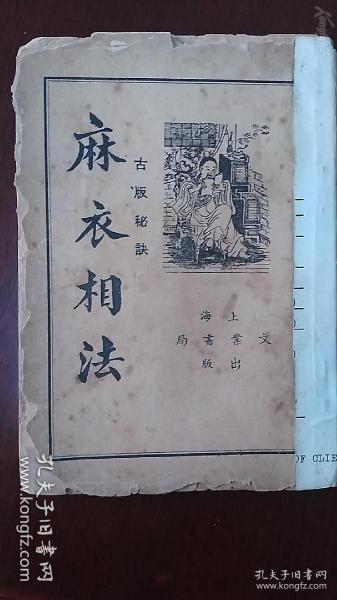 麻衣相法
古版秘訣
上海
文業書局
出版
OF CLIE
孔夫子旧书网
www.kongfz.com
孔夫子旧书网
www.kongfz.com